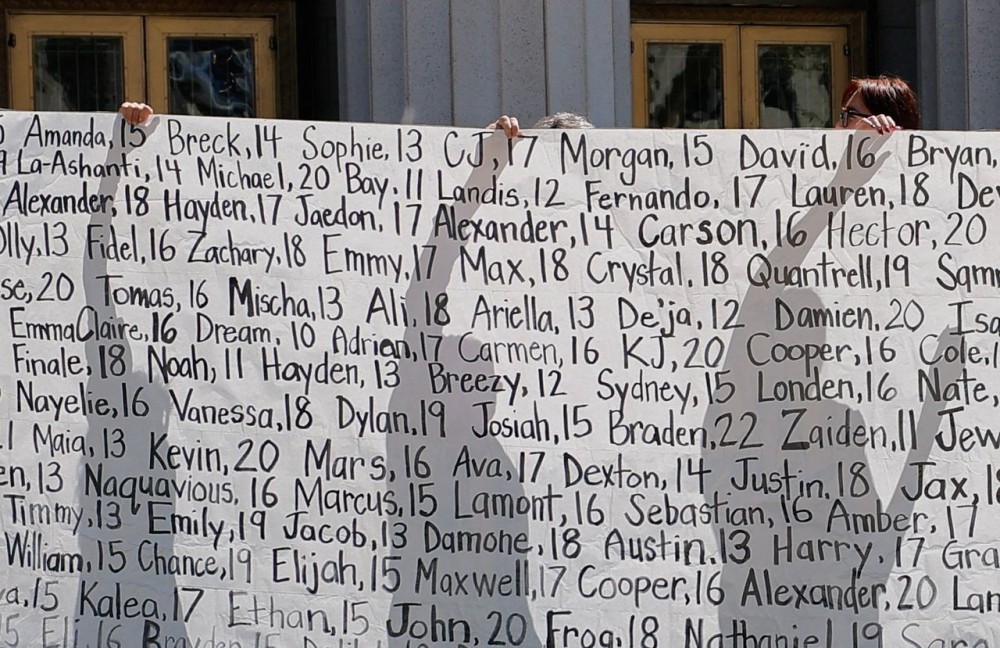 Amanda, 15 Breck, 14 Sophie, 13 CJ, 17 Morgan, 15 David, 16 Bryan,
La-Ashanti, 14 Michael, 20 Bay, 11 Landis, 12 Fernando, 17 Lauren, 18 De
Alexander, 18 Hayden, 17 Jaedon, 17 Alexander, 14 Carson, 16 Hector, 20
olly, 13 Fidel, 16 Zachary, 18 Emmy, 17 Max, 18 Crystal, 18 Quantrell, 19 Sam
se, 20 Tomas, 16 Mischa, 13 Ali, 18 Ariella, 13 De'ja, 12 Damien, 20 Isa
EmmaClaire, 16 Dream, 10 Adrian, 17 Carmen, 16 KJ, 20 Cooper, 16 Cole, 1
Finale, 18 Noah, 11 Hayden, 13 Breezy, 12 Sydney, 15 Londen, 16 Nate,
Nayelie, 16 Vanessa, 18 Dylan, 19 Josiah, 15 Braden, 22 Zaiden, 11 Jew
Maia, 13 Kevin, 20 Mars, 16 Ava, 17 Dexton, 14 Justin, 18 Jax, 1
en, 13 Naquavious, 16 Marcus, 15 Lamont, 16 Sebastian, 16 Amber, 17
Timmy, 13 Emily, 19 Jacob, 13 Damone, 18 Austin, 13 Harry, 17 Gra
William, 15 Chance, 19 Elijah, 15 Maxwell, 17 Cooper, 16 Alexander, 20 Lan
a, 15 Kalea, 17 Ethan, 15 John, 20 Frog, 18 Nathaniel, 19 Sara
5 Eli, 16 Brayden, 15